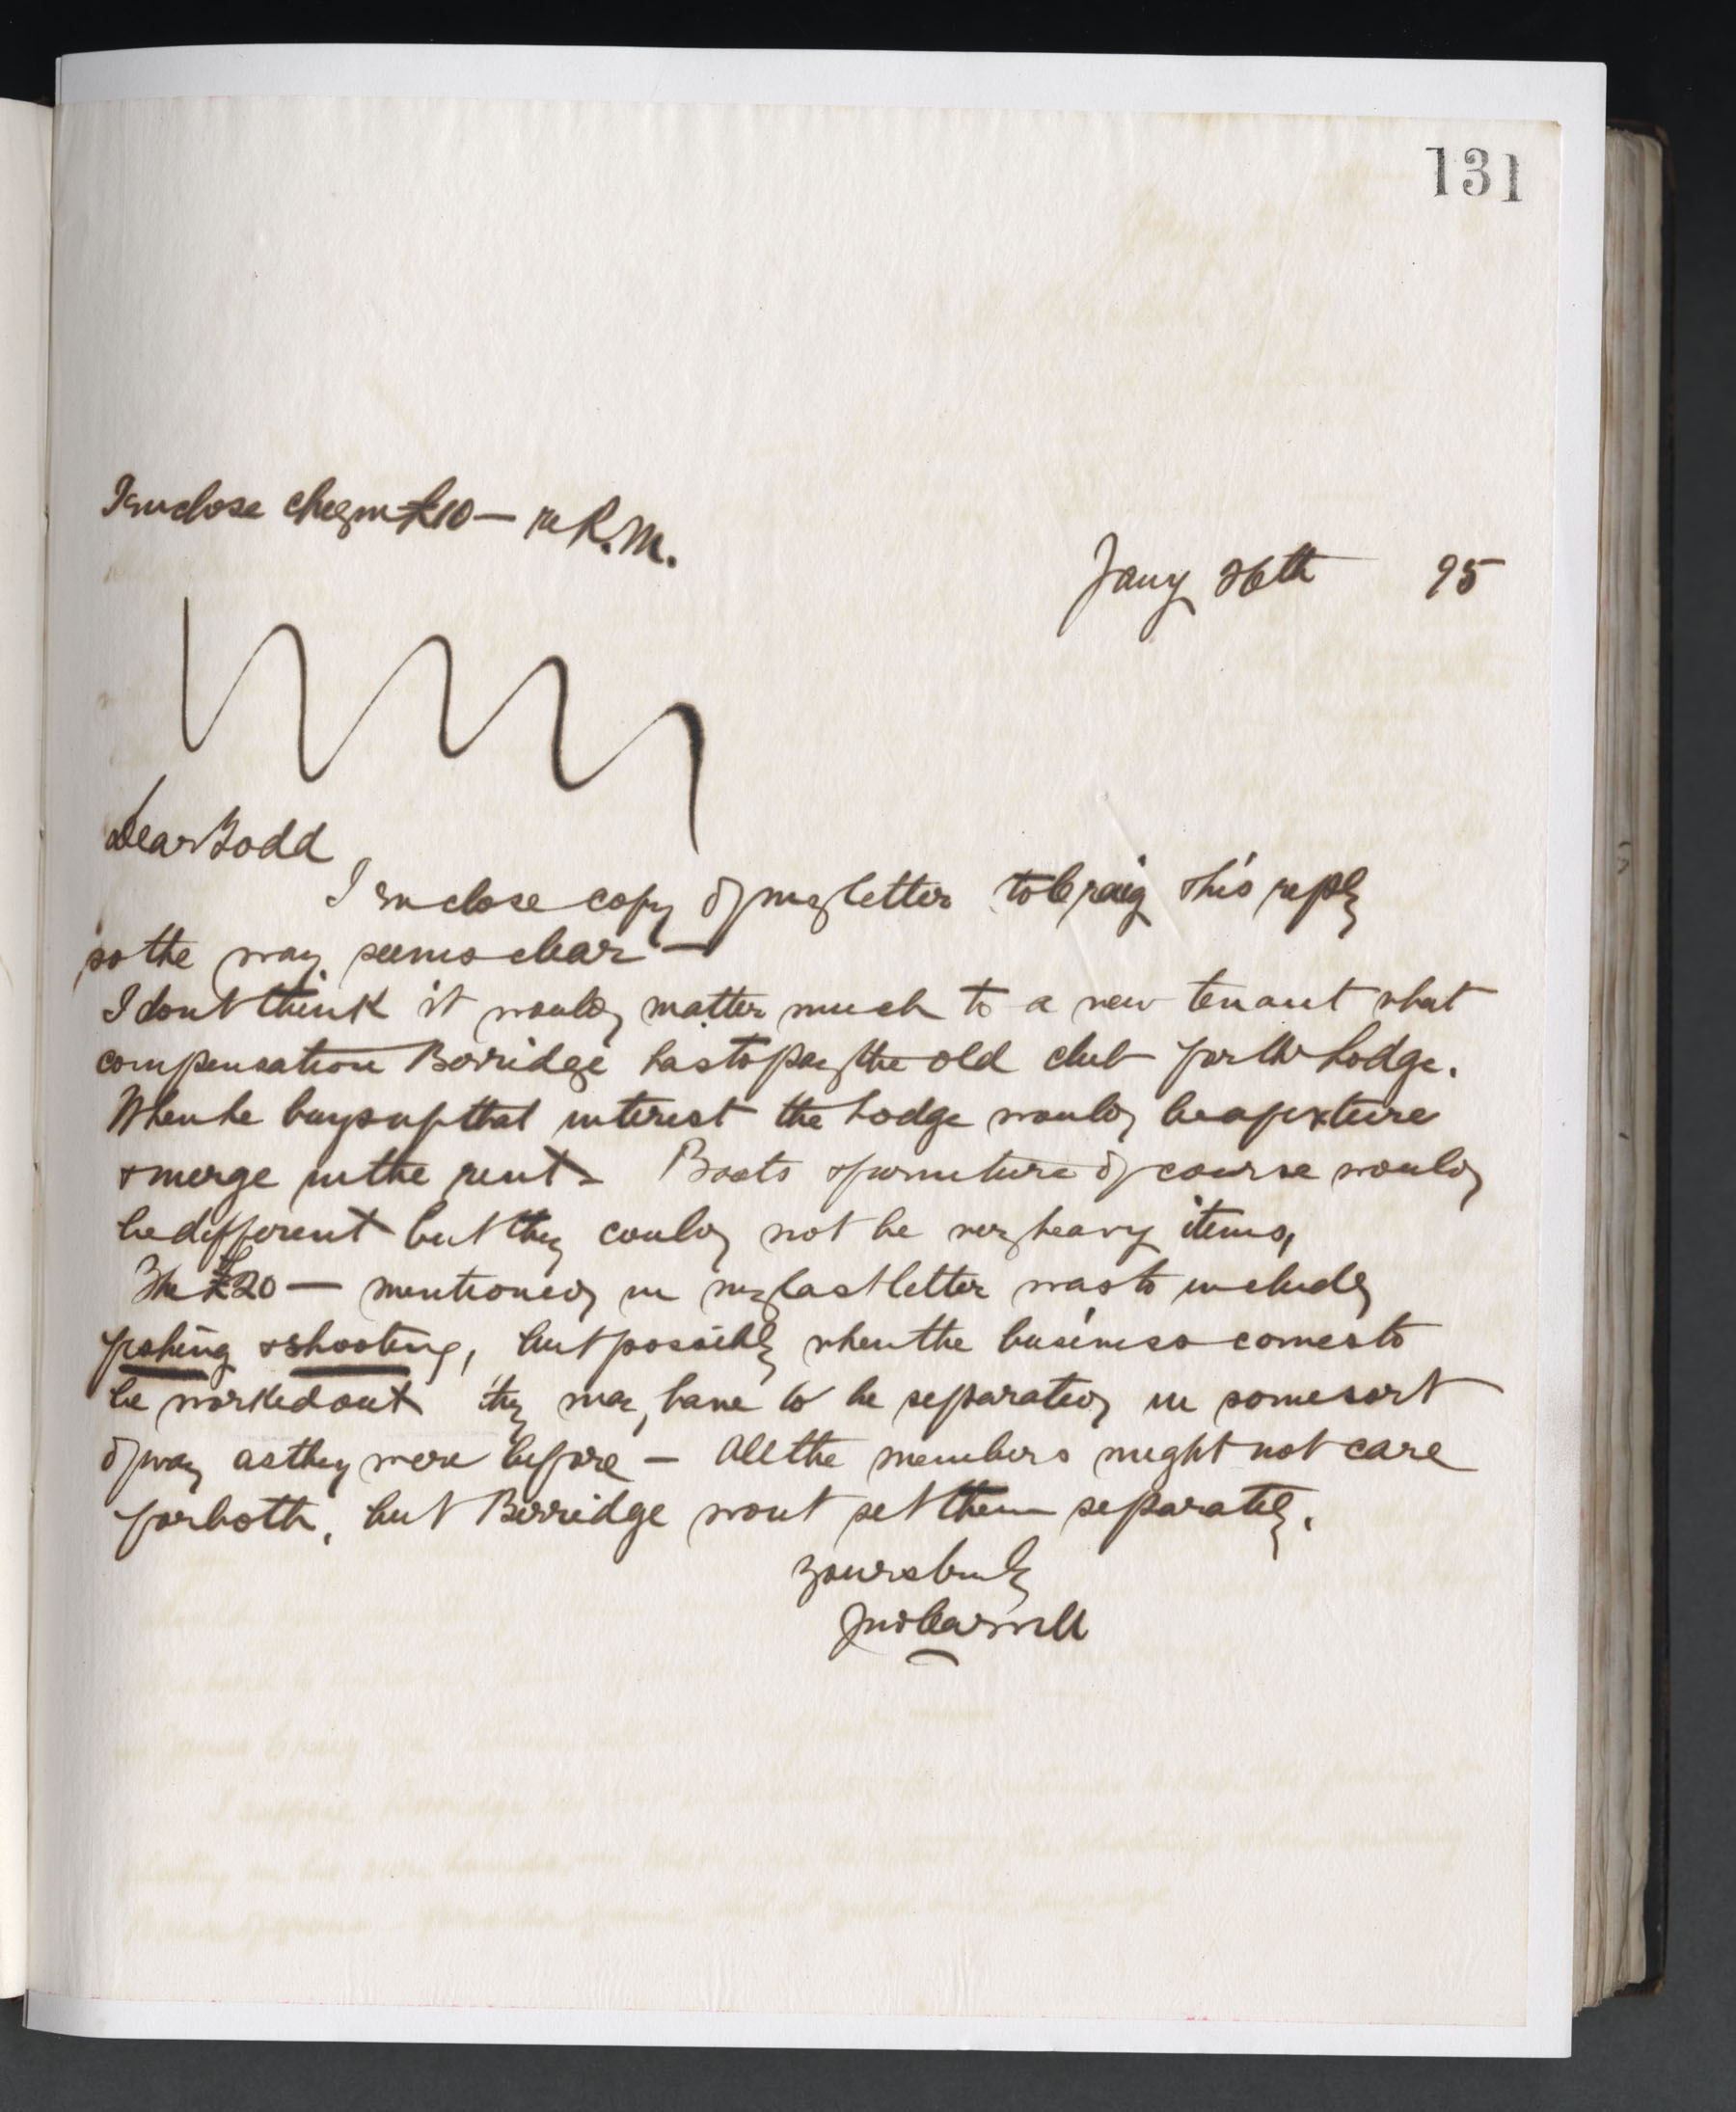 131
I enclose cheque £10 — re R.M.
Jany 26th 95
Dear Todd
I enclose copy of my letter to Craig & his reply
so the way seems clear —
I dont think it would matter much to a new tenant what
compensation Berridge has to pay the old club for the Lodge.
When he buys up that interest the Lodge would be a fixture
& merge in the rent — Boats & furniture of course would
be different but they could not be very heavy items,
The £20 — mentioned in my last letter was to include
fishing & shooting, but possibly when the business comes to
be worked out they may have to be separated in some sort
of way as they were before — All the members might not care
for both, but Berridge wont set them separately.
Yours truly